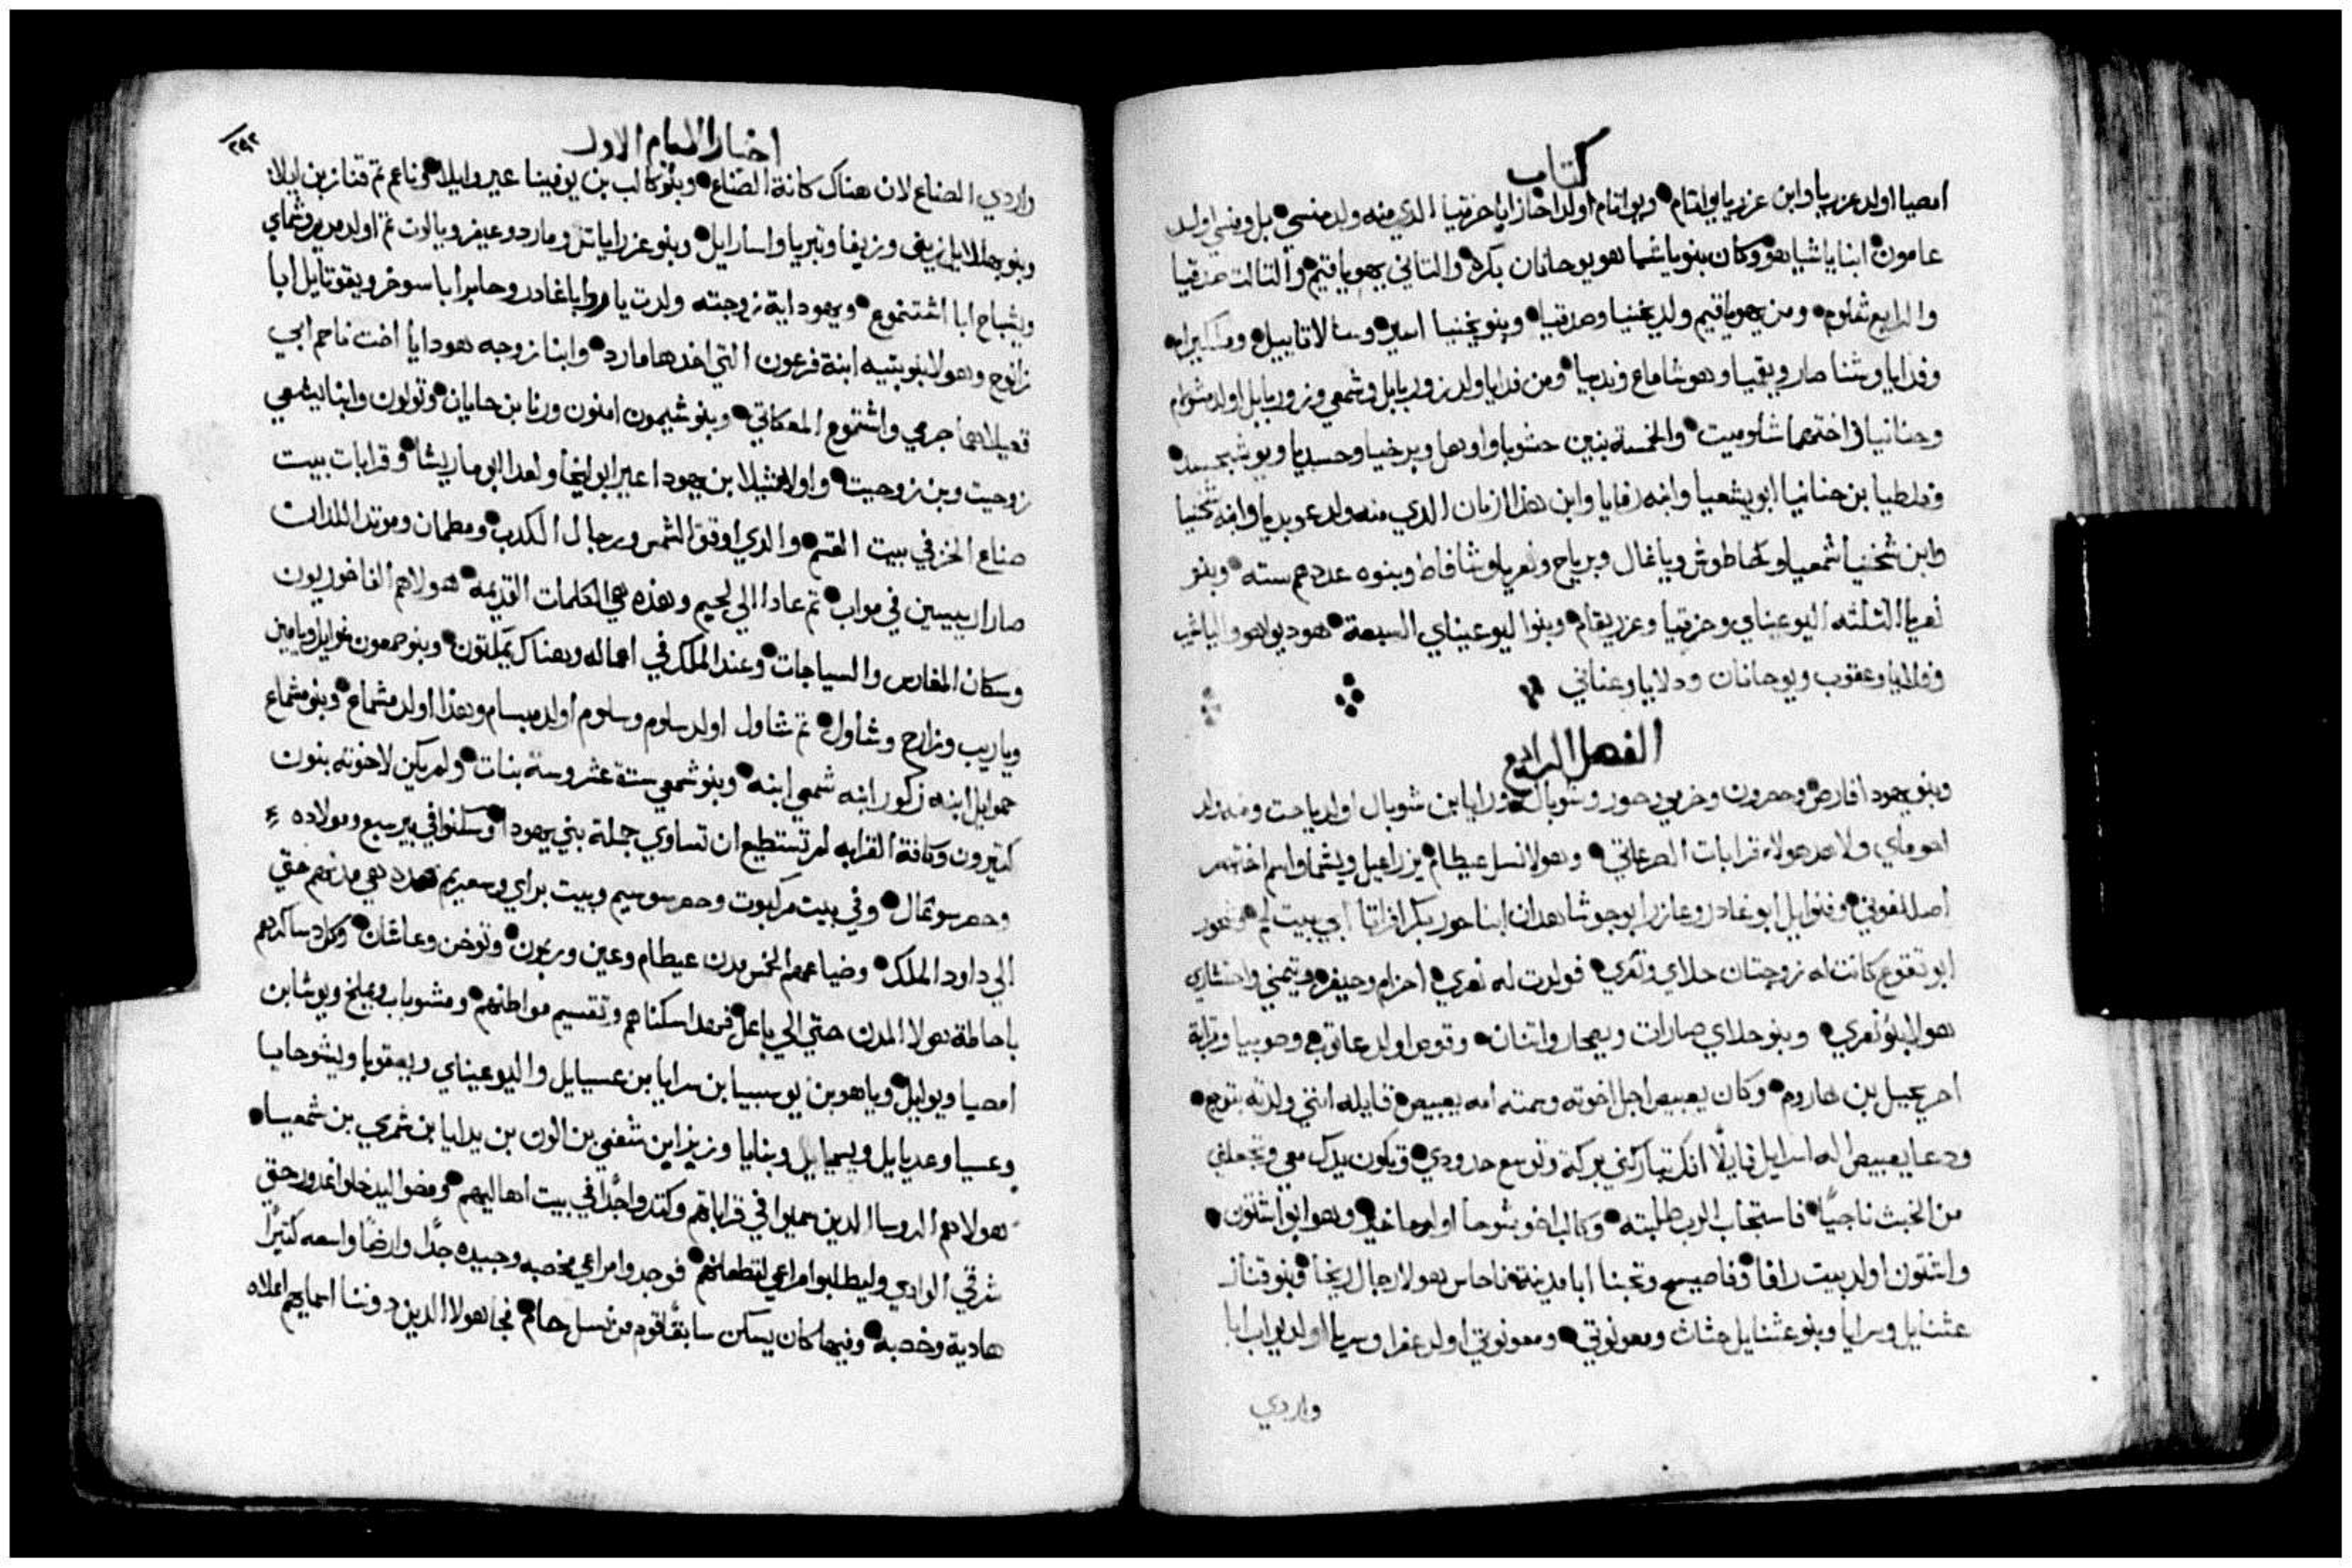 كتاب
امصيا اولد عزريا وابن عزريا يواتام ويواتام اولد احاز ابا حزقيا الذي منه ولد منسي بل ومنسي اولد
عامون ابنا ياشيا هو وكان بنو ياشيا هو يوحانان بكره والتاني يهوياقيم والتالت صدقيا
والرابع شلوم ومن يهوياقيم ولد يخنيا وصدقيا وبنو يخنيا اسير وسالاتاييل وملكيرام
وفدايا وشناصار ويقميا وهوشاماع وندبيا ومن فدايا ولد زوربابل وشمعي وزوربابل اولد مشولام
وحنانيا واختهما شلوميت والخمسة بنين حشوبا واوهل وبرخيا وحسديا ويوشبحسد
وفلطيا بن حنانيا ابو يشعيا وابنه رفايا وابن هذا ازنان الدي منه ولد عوبديا وابنه شخنيا
وابن شخنيا شمعيا وحاطوش وياغال وبرياح ونعريا وشافاط وبنوه عددهم سته وبنو
نعريا الثلثه اليوعيناي وحزقيا وعزريقام وبنوا ليوعيناي السبعة هوديوا هو والياشيب
وفلايا وعقوب ويوحانان ودلايا وعناني
الفصل الرابع
وبنو يهودا فارص وحصرون وخرمي وحور وشوبال ورايا بن شوبال اولد ياحت ومنه ولد
احوماي ولاهد هولاء قرابات الصرعاتي وهولا نسل عيطام يزراعيل ويشما واسم اختهم
اصللفوني وفنوايل ابو غادور وعازر ابو حوشا هدان ابنا حور بكر افراتا ابي بيت لحم وشحور
ابو تقوع كانت له زوجتان حلاي ونعري فولدت له نعري احزام وحيفر وتيمني واحشتاري
هولا بنو نعري وبنو حلاي صارات ويصحار واتنان وقوص اولد عاقوب وصوبيبا وقرابة
احرحيل بن هاروم وكان يعبيص اجل اخوته وسمته امه يعبيص قايله انني ولدته بتوجع
ودعا يعبيص اله اسرايل قايلًا انك تباركني بركة وتوسع حدودي وتكون يدك معي وتجعلني
من الخبث ناجيًا فاستجاب الرب طلبته وكالب اخو شوحا اولد ماخير وهو ابو اشتون
واشتون اولد بيت رافا وفاصيح وتحنا ابا مدينة ناحاس هولا رجال ريخا وبنو قناز
عثنايل وسرايا وبنو عثنايل حثاث ومعونوتي ومعونوتي اولد عفرا وسرايا اولد يواب ابا
واردي
اخبار الايام الاول
٢٩٢
واردي الصناع لان هناك كانة الصناع وبنو كالب بن يوفينا عير وايلا وناعم تم قناز بن ايلا
وبنو يهللايل زيف وزيفا وتيريا واسارايل وبنو عزرا ياتر ومارد وعيفر ويالون تم اولد مريم وشماي
ويشباح ابا اشتموع ويهوداية زوجته ولدت يارد ابا غادر وحابر ابا سوخو ويقوتايل ابا
زانوح وهولا بنو بتيه ابنة فرعون التي اخدها مارد وابنا زوجه هودايا اخت ناحم ابي
قعيلا هما جرمي واشتموع المعكاتي وبنو شيمون امنون ورنا بن حانان وتولون وابنا يشعي
زوحيت وبن زوحيت واولاد شيلا بن يهودا عير ابو ليخا ولعدا ابو ماريشا وقرابات بيت
صناع الخز في بيت القسم والدي اوقف الشمس ورجال الكدب ومطمان وموقد اللدان
صاراريسين في مواب تم عادا الي لحيم وهذه هي الكلمات القديمه هولا هم الفاخوريون
وسكان المغارس والسياجات وعند الملك في اعماله وهناك يمكتون وبنو سمعون نموايل ويامين
وياريب وزارح وشاول تم شاول اولد سلوم وسلوم اولد مبسام وهذا اولد مشماع وبنو مشماع
حموايل ابنه زكور ابنه شمعي ابنه وبنو شمعي ستة عشر وستة بنات ولم يكن لاخوته بنون
كتيرون وكافة القرابه لم تستطيع ان تساوي جملة بني يهودا وسكنوا في بير سبع ومولاده
وحصر سوعال وفي بيت مركبوت وحصر سوسيم وبيت براي وسعريم هده هي مدنهم حتي
الي داود الملك وضياعهم الخمس مدن عيطام وعين وريمون وتوخن وعاشان وكل دساكرهم
باحاطة هولا المدن حتي الي باعل فهدا سكناهم وتقسيم مواطنهم ومشوباب ويملخ ويوشا بن
امصيا ويوايل وياهو بن يوسبيا بن سرايا بن عسيايل واليوعيناي ويعقوبا ويشوحايا
وعسيا وعديايل ويسيمايل وبنايا وزيزا بن شفعي بن الون بن يدايا بن شمري بن شمعيا
هولا هم الروسا الدين سميوا في قراباتهم وكتروا جدًا في بيت اهاليهم ومضوا ليدخلوا غدور حتي
شرقي الوادي وليطلبوا مراعي لقطعانهم فوجدوا مراعي مخصبه وجيده جدًا وارضًا واسعه كتيرًا
هادية وخصبه وفيها كان يسكن سابقًا قوم من نسل حام فجا هولا الدين دوننا اسمايهم اعلاه